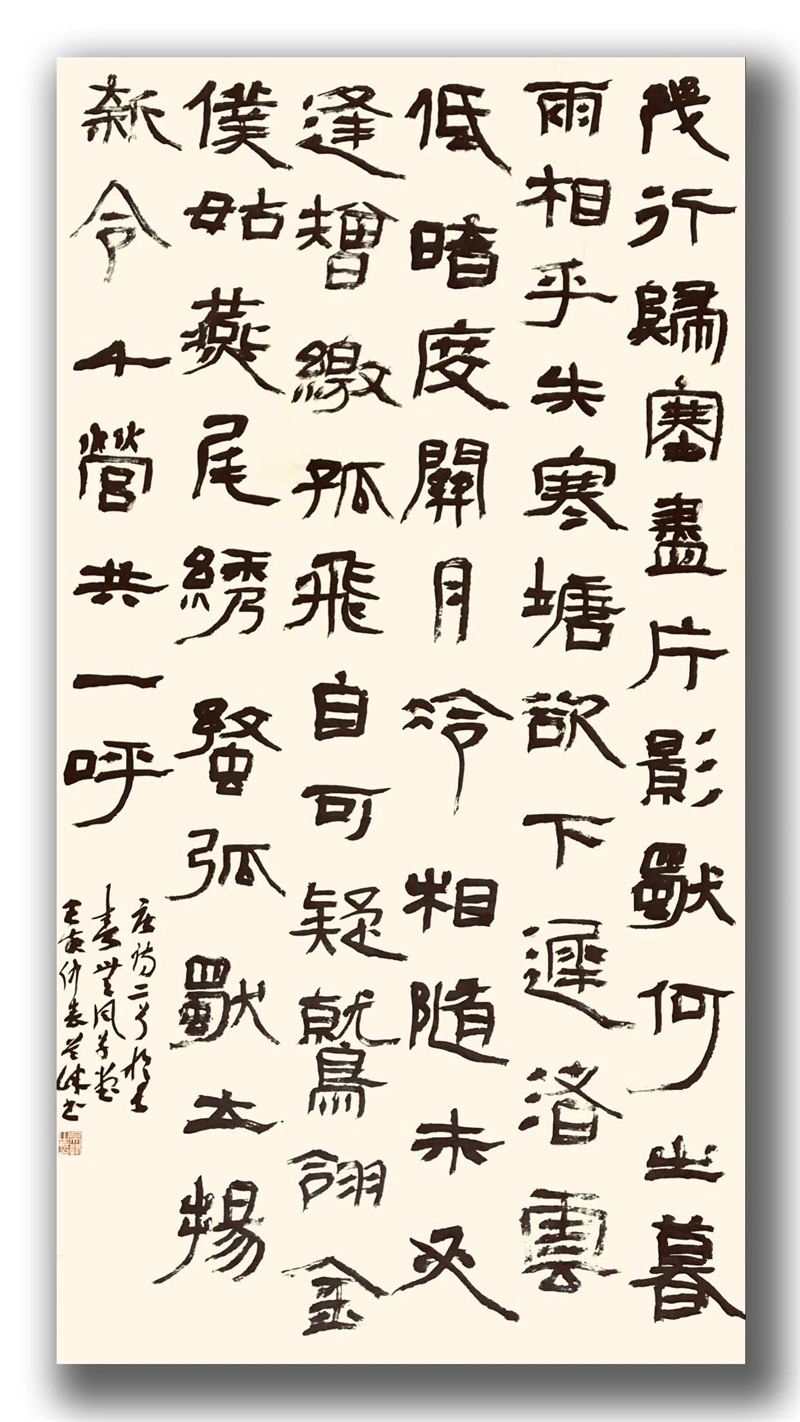 幾行歸塞盡片影獨何之暮
雨相乎失寒塘欲下遲渚雲
低暗度關月冷相隨未必
逢矰繳孤飛自可疑鷲翎金
僕姑燕尾綉蝥弧獨立揚
新令千營共一呼
唐詩二首於長
春風草堂
壬寅仲春書